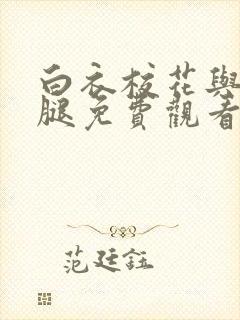 白衣校花與
腿免費觀看
范廷鈺